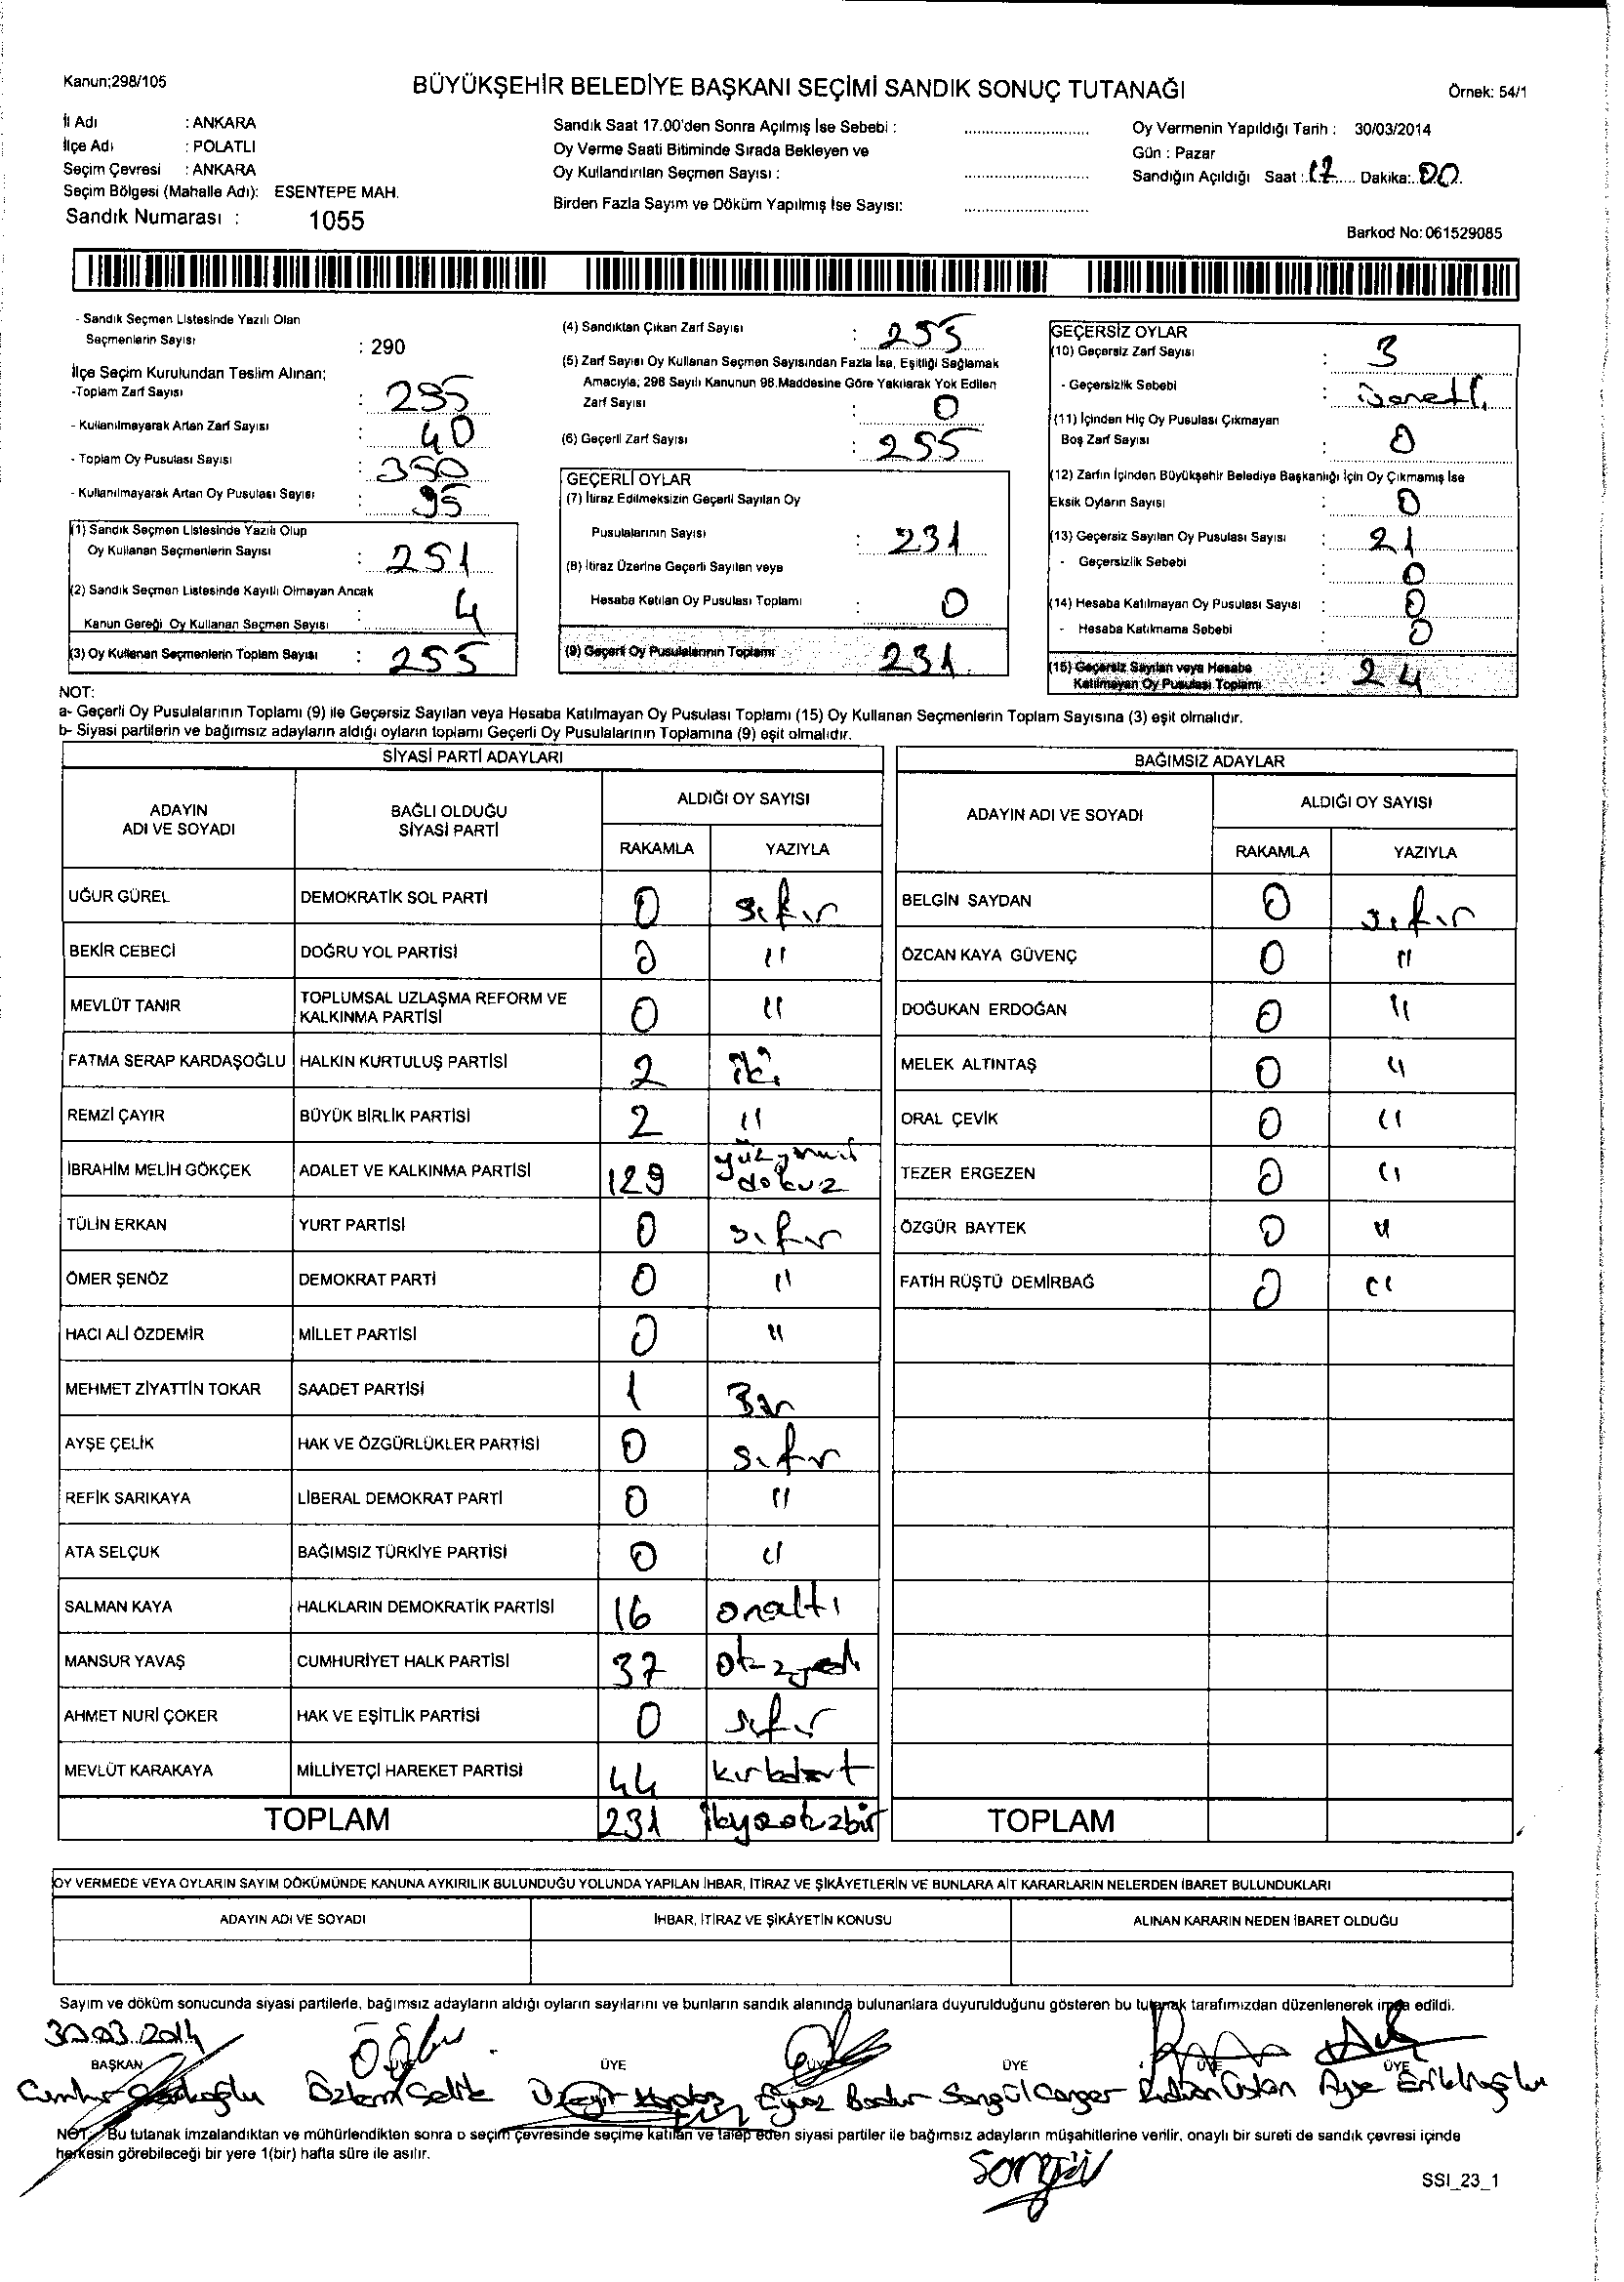 Kanun;298/105
BÜYÜKŞEHİR BELEDİYE BAŞKANI SEÇİMİ SANDIK SONUÇ TUTANAĞI
Örnek: 54/1
İl Adı : ANKARA
İlçe Adı : POLATLI
Seçim Çevresi : ANKARA
Seçim Bölgesi (Mahalle Adı): ESENTEPE MAH.
Sandık Numarası : 1055
Sandık Saat 17.00'den Sonra Açılmış İse Sebebi :
Oy Verme Saati Bitiminde Sırada Bekleyen ve
Oy Kullandırılan Seçmen Sayısı :
Birden Fazla Sayım ve Döküm Yapılmış İse Sayısı:
Oy Vermenin Yapıldığı Tarih : 30/03/2014
Gün : Pazar
Sandığın Açıldığı Saat : 17 Dakika: 00
Barkod No: 061529085
- Sandık Seçmen Listesinde Yazılı Olan
Seçmenlerin Sayısı : 290
İlçe Seçim Kurulundan Teslim Alınan;
-Toplam Zarf Sayısı : 295
- Kullanılmayarak Artan Zarf Sayısı : 40
- Toplam Oy Pusulası Sayısı : 350
- Kullanılmayarak Artan Oy Pusulası Sayısı : 95
(1) Sandık Seçmen Listesinde Yazılı Olup
Oy Kullanan Seçmenlerin Sayısı : 251
(2) Sandık Seçmen Listesinde Kayıtlı Olmayan Ancak
Kanun Gereği Oy Kullanan Seçmen Sayısı : 4
(3) Oy Kullanan Seçmenlerin Toplam Sayısı : 255
(4) Sandıktan Çıkan Zarf Sayısı : 255
(5) Zarf Sayısı Oy Kullanan Seçmen Sayısından Fazla İse, Eşitliği Sağlamak
Amacıyla; 298 Sayılı Kanunun 98.Maddesine Göre Yakılarak Yok Edilen
Zarf Sayısı : 0
(6) Geçerli Zarf Sayısı : 255
GEÇERLİ OYLAR
(7) İtiraz Edilmeksizin Geçerli Sayılan Oy
Pusulalarının Sayısı : 231
(8) İtiraz Üzerine Geçerli Sayılan veya
Hesaba Katılan Oy Pusulası Toplamı : 0
(9) Geçerli Oy Pusulalarının Toplamı : 231
GEÇERSİZ OYLAR
(10) Geçersiz Zarf Sayısı : 3
- Geçersizlik Sebebi : işaretli
(11) İçinden Hiç Oy Pusulası Çıkmayan
Boş Zarf Sayısı : 0
(12) Zarfın İçinden Büyükşehir Belediye Başkanlığı İçin Oy Çıkmamış İse
Eksik Oyların Sayısı : 0
(13) Geçersiz Sayılan Oy Pusulası Sayısı : 21
- Geçersizlik Sebebi : 0
(14) Hesaba Katılmayan Oy Pusulası Sayısı : 0
- Hesaba Katılmama Sebebi : 0
(15) Geçersiz Sayılan veya Hesaba
Katılmayan Oy Pusulası Toplamı : 24
NOT:
a- Geçerli Oy Pusulalarının Toplamı (9) ile Geçersiz Sayılan veya Hesaba Katılmayan Oy Pusulası Toplamı (15) Oy Kullanan Seçmenlerin Toplam Sayısına (3) eşit olmalıdır.
b- Siyasi partilerin ve bağımsız adayların aldığı oyların toplamı Geçerli Oy Pusulalarının Toplamına (9) eşit olmalıdır.
SİYASİ PARTİ ADAYLARI
ADAYIN ADI VE SOYADI BAĞLI OLDUĞU SİYASİ PARTİ ALDIĞI OY SAYISI
RAKAMLA YAZIYLA
UĞUR GÜREL DEMOKRATİK SOL PARTİ 0 sıfır
BEKİR CEBECİ DOĞRU YOL PARTİSİ 0 "
MEVLÜT TANIR TOPLUMSAL UZLAŞMA REFORM VE KALKINMA PARTİSİ 0 "
FATMA SERAP KARDAŞOĞLU HALKIN KURTULUŞ PARTİSİ 2 iki
REMZİ ÇAYIR BÜYÜK BİRLİK PARTİSİ 2 "
İBRAHİM MELİH GÖKÇEK ADALET VE KALKINMA PARTİSİ 129 yüzyirmi dokuz
TÜLİN ERKAN YURT PARTİSİ 0 sıfır
ÖMER ŞENÖZ DEMOKRAT PARTİ 0 "
HACI ALİ ÖZDEMİR MİLLET PARTİSİ 0 "
MEHMET ZİYATTİN TOKAR SAADET PARTİSİ 1 Bir
AYŞE ÇELİK HAK VE ÖZGÜRLÜKLER PARTİSİ 0 sıfır
REFİK SARIKAYA LİBERAL DEMOKRAT PARTİ 0 "
ATA SELÇUK BAĞIMSIZ TÜRKİYE PARTİSİ 0 "
SALMAN KAYA HALKLARIN DEMOKRATİK PARTİSİ 16 onaltı
MANSUR YAVAŞ CUMHURİYET HALK PARTİSİ 37 otuzyedi
AHMET NURİ ÇOKER HAK VE EŞİTLİK PARTİSİ 0 sıfır
MEVLÜT KARAKAYA MİLLİYETÇİ HAREKET PARTİSİ 44 kırkdört
TOPLAM 231 ikiyüzotuzbir
BAĞIMSIZ ADAYLAR
ADAYIN ADI VE SOYADI ALDIĞI OY SAYISI
RAKAMLA YAZIYLA
BELGİN SAYDAN 0 sıfır
ÖZCAN KAYA GÜVENÇ 0 "
DOĞUKAN ERDOĞAN 0 "
MELEK ALTINTAŞ 0 "
ORAL ÇEVİK 0 "
TEZER ERGEZEN 0 "
ÖZGÜR BAYTEK 0 "
FATİH RÜŞTÜ DEMİRBAĞ 0 "
TOPLAM
OY VERMEDE VEYA OYLARIN SAYIM DÖKÜMÜNDE KANUNA AYKIRILIK BULUNDUĞU YOLUNDA YAPILAN İHBAR, İTİRAZ VE ŞİKÂYETLERİN VE BUNLARA AİT KARARLARIN NELERDEN İBARET BULUNDUKLARI
ADAYIN ADI VE SOYADI İHBAR, İTİRAZ VE ŞİKÂYETİN KONUSU ALINAN KARARIN NEDEN İBARET OLDUĞU
Sayım ve döküm sonucunda siyasi partilerle, bağımsız adayların aldığı oyların sayılarını ve bunların sandık alanında bulunanlara duyurulduğunu gösteren bu tutanak tarafımızdan düzenlenerek imza edildi.
30.03.2014
BAŞKAN ÜYE ÜYE ÜYE ÜYE ÜYE ÜYE
Özlem Çelik Songül Ayşe
NOT: Bu tutanak imzalandıktan ve mühürlendikten sonra o seçim çevresinde seçime katılan ve talep eden siyasi partiler ile bağımsız adayların müşahitlerine verilir, onaylı bir sureti de sandık çevresi içinde
herkesin görebileceği bir yere 1(bir) hafta süre ile asılır.
Songül
SSI_23_1